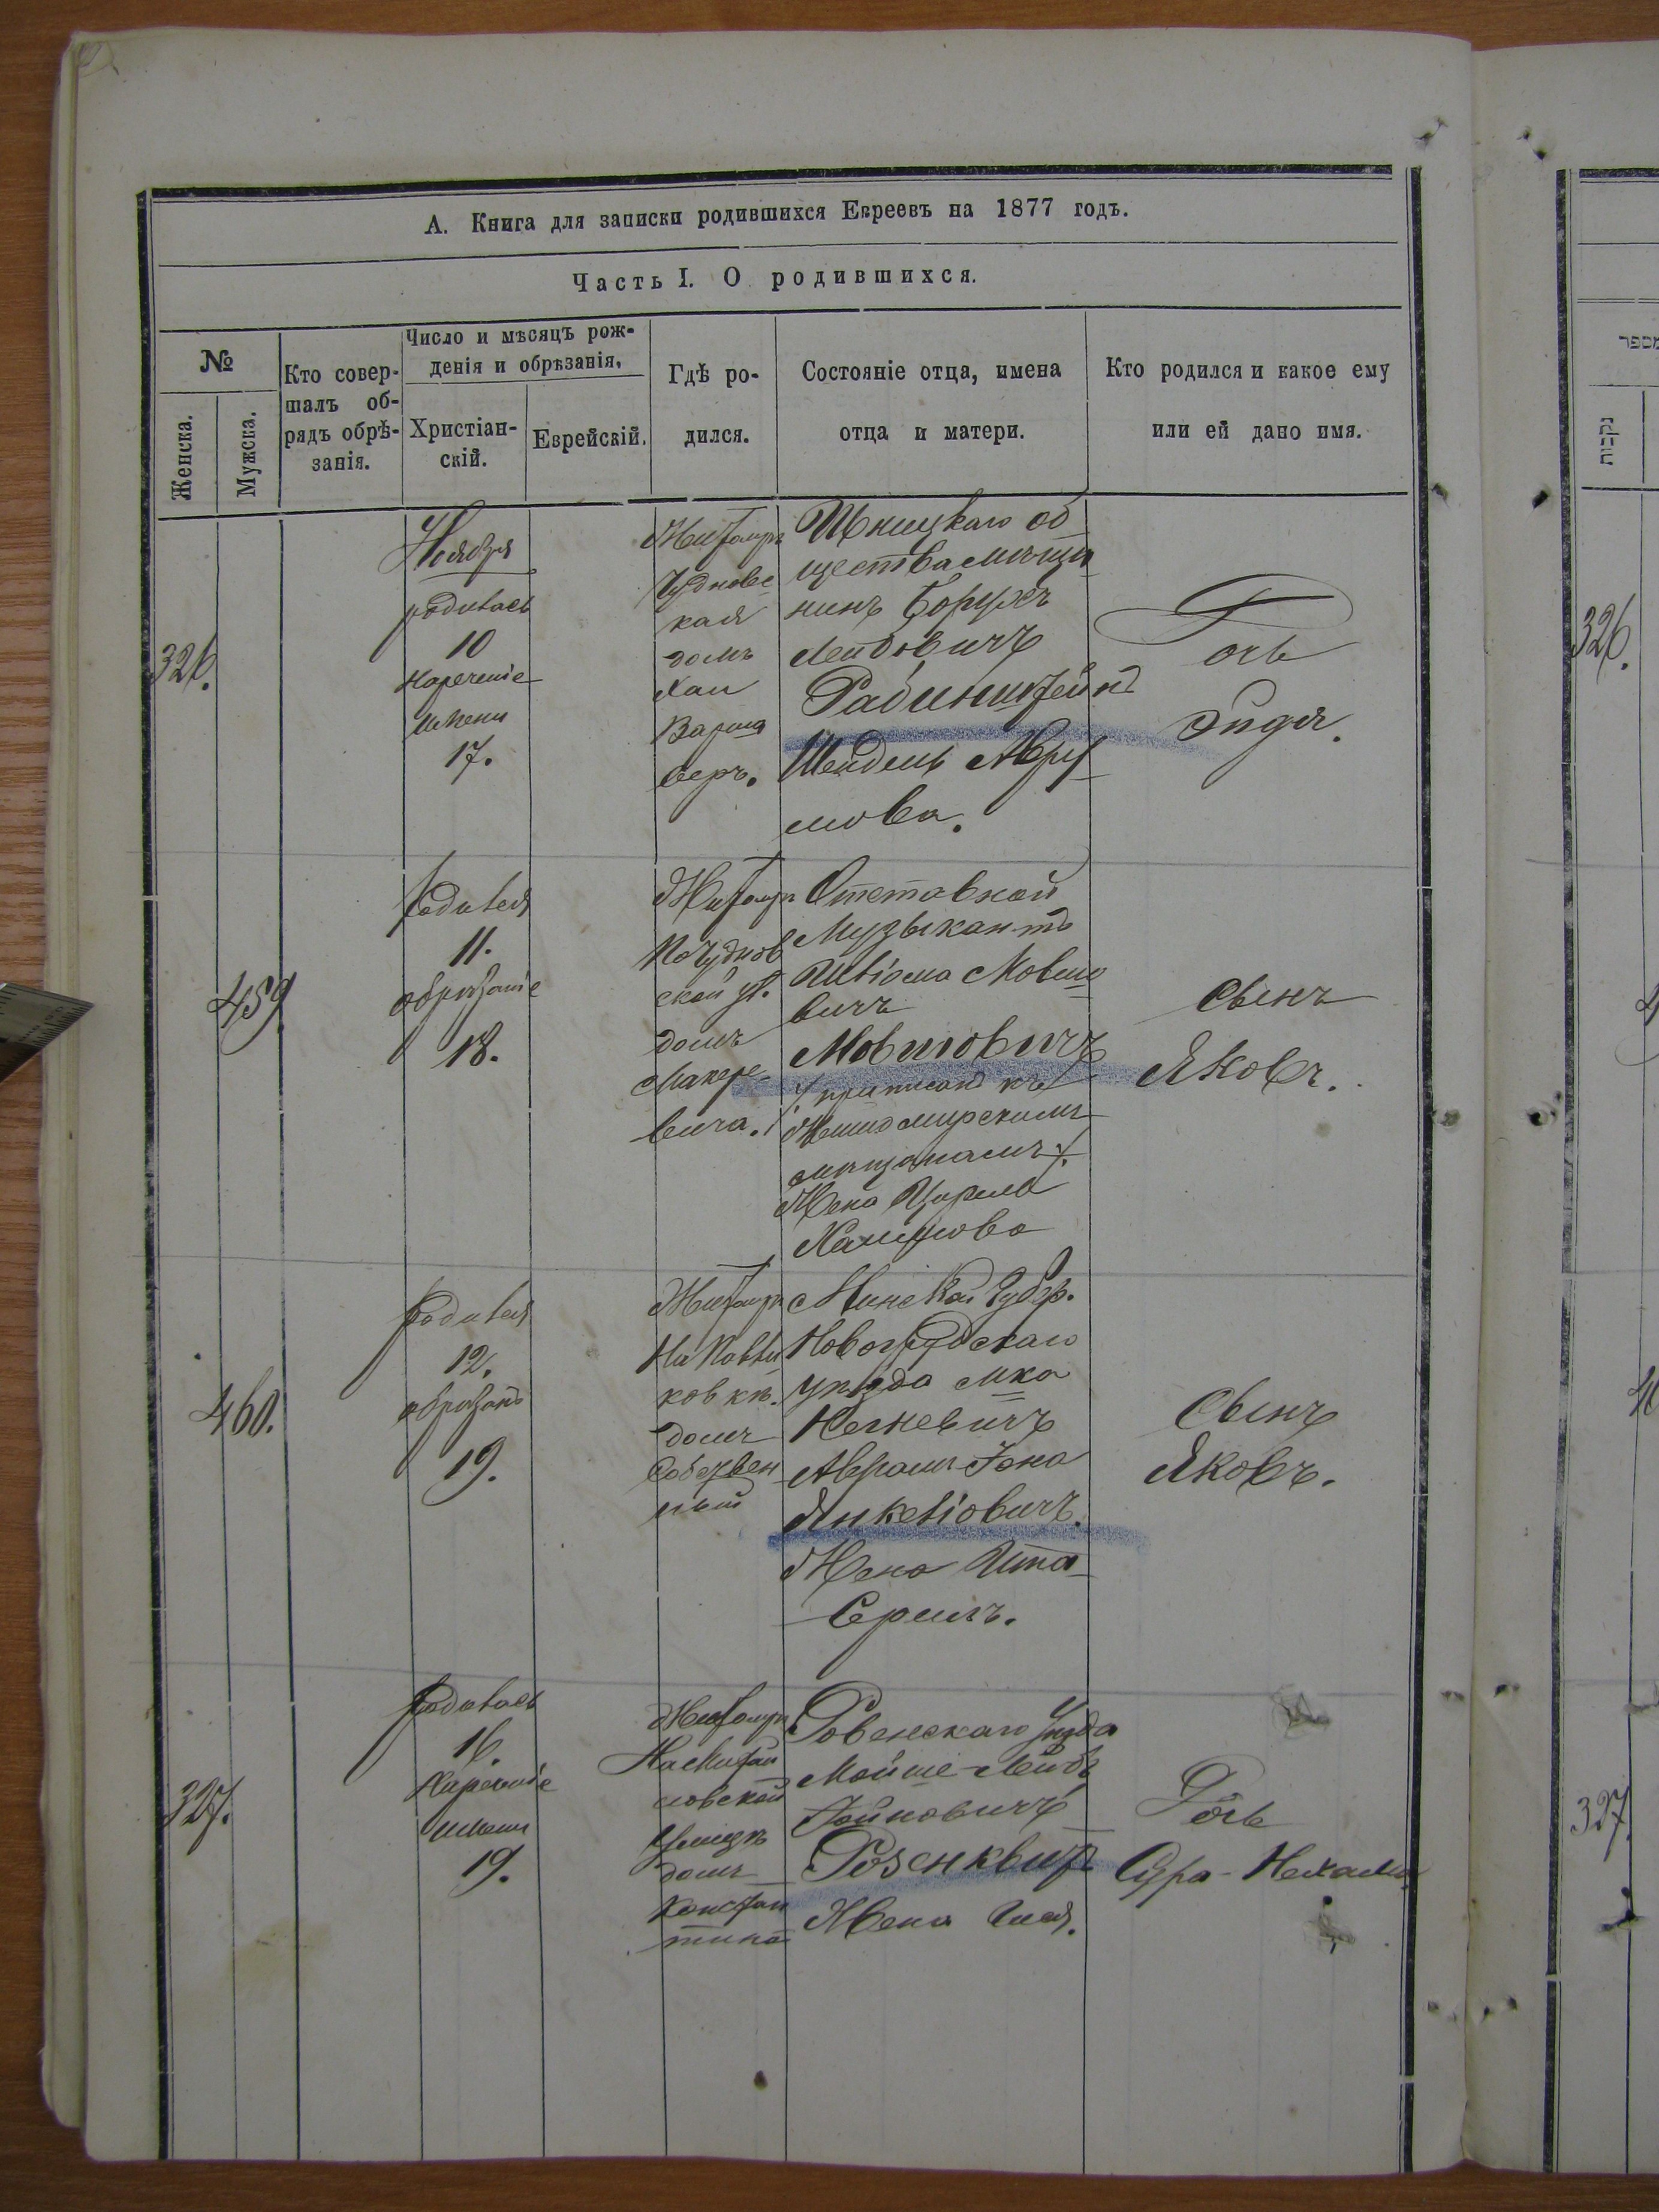 А. Книга для записки родившихся Евреевъ на 1877 годъ.
Часть I. О родившихся.
№
Женска.
Мужска.
Кто совер-
шалъ об-
рядъ обрѣ-
занія.
Число и мѣсяцъ рож-
денія и обрѣзанія.
Христіан-
скій.
Еврейскій.
Гдѣ ро-
дился.
Состояніе отца, имена
отца и матери.
Кто родился и какое ему
или ей дано имя.
326.
Ноября
родилась
10
нареченіе
имени
17.
Житомиръ
Чудновс
кая
домъ
Хаи
Варша
веръ.
общества мѣща
нинъ Борухъ
Лейбовичъ
Рабиништейнъ
Шендель Авру
мова.
Дочь
Эйдя.
459
Родился
11.
обрѣзаніе
18.
Житомиръ
По Чуднов
ской ул.
домъ
Макаре
вича.
Отставной
Музыкантъ
Мовшо
вичъ
Мовшовичъ
приписанъ къ
Житомирскимъ
мѣщанамъ
Жена Цирля
Хаимова
Сынъ
Яковъ.
460.
Родился
12.
обрѣзанъ
19.
Житомиръ
домъ
Собствен
ный
Минской Губер.
Новогрудскаго
уѣзда м-ка
Негневичъ
Аврамъ-Іона
Янкеліовичъ.
Жена Ита
Сынъ
Яковъ.
327.
Родилась
16.
Нареченіе
имени
19.
Житомиръ
На Михай
ловской
улицѣ
домъ
Констан
тинов
Ровенскаго уѣзда
Мойше-Лейбъ
Розенквитъ
Жена
Дочь
Сура-Нехама
326.
327.
מספר
נקבות